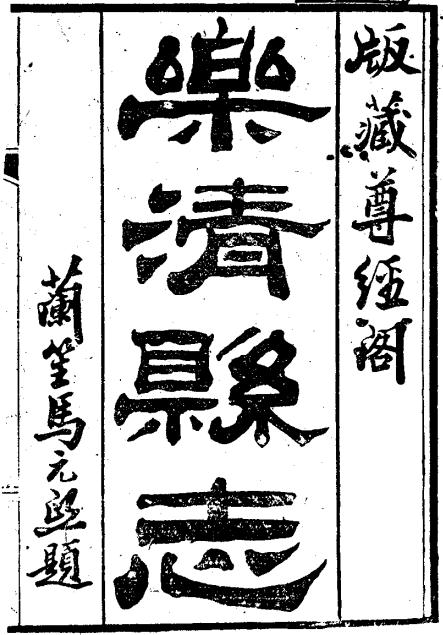 版藏尊經閣
樂清縣志
蘭笙馬元熙題